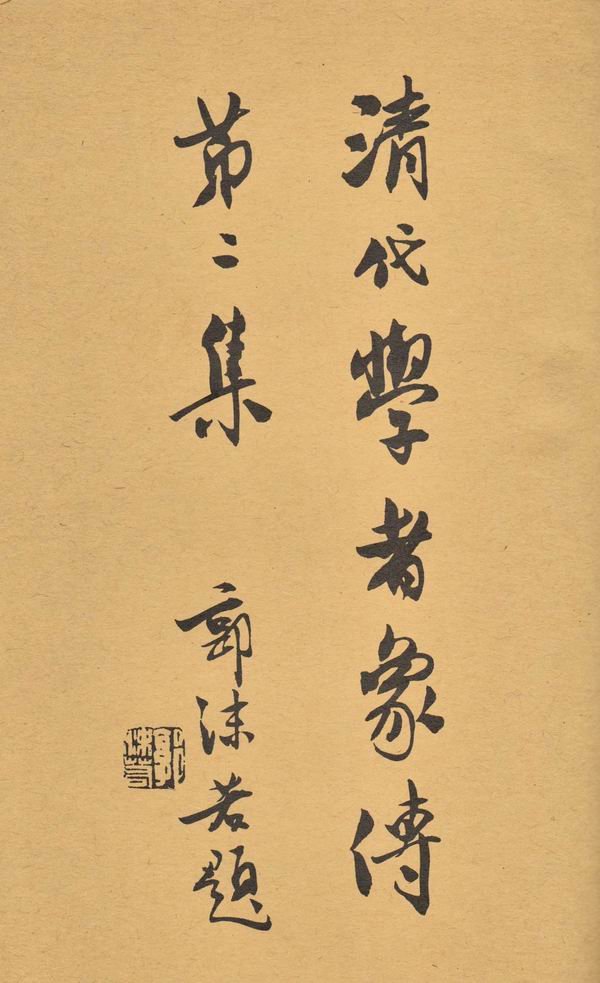 清代學者象傳
第二集
郭沫若題
郭沫若